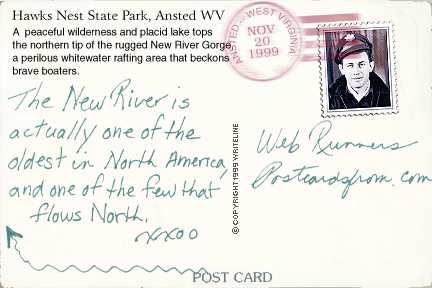 Hawks Nest State Park, Ansted WV
A peaceful wilderness and placid lake tops
the northern tip of the rugged New River Gorge,
a perilous whitewater rafting area that beckons
brave boaters.
ANSTED WEST VIRGINIA
NOV
20
1999
The New River is
actually one of the
oldest in North America,
and one of the few that
flows North.
xxoo
© COPYRIGHT 1999 WRITELINE
Web Runners
Postcardsfrom.com
POST CARD